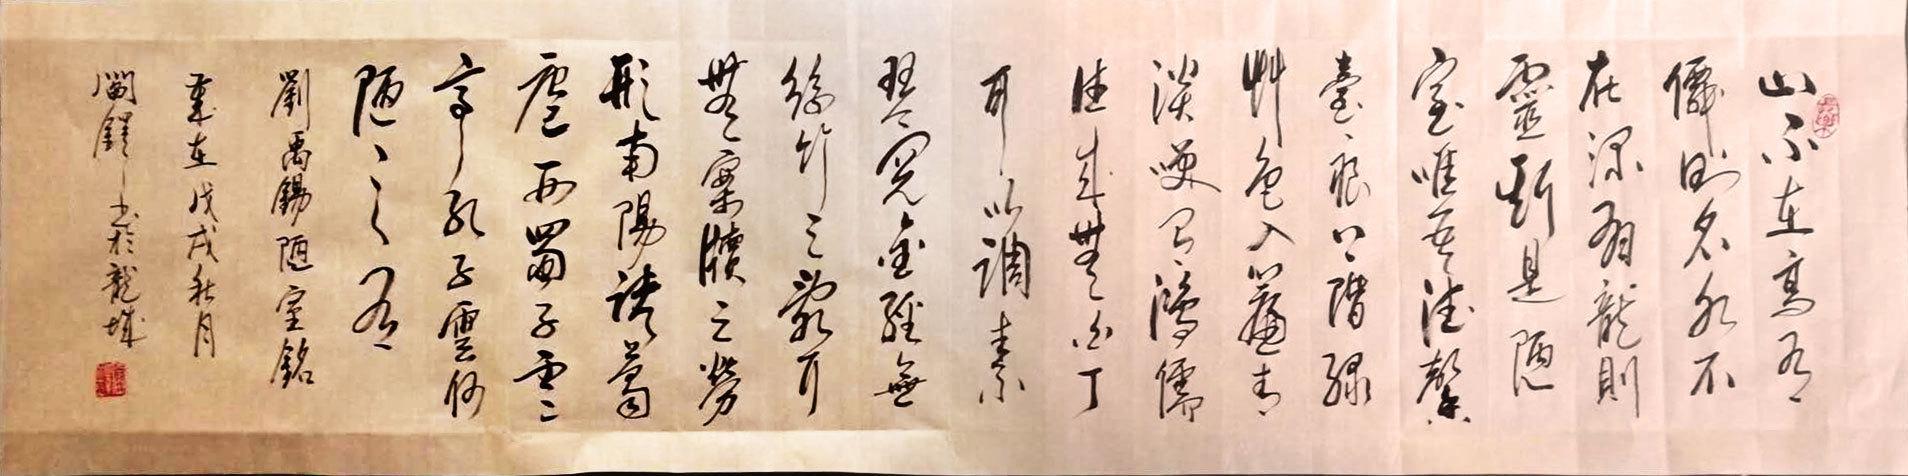 山不在高有
僊則名水不
在深有龍則
靈斯是陋
室唯吾德馨
臺痕上階緑
艸色入簾青
談咲有鴻儒
往來無白丁
可以調素
琴閲金經無
絲竹之亂耳
無案牘之勞
形南陽諸葛
廬西蜀子雲
亭孔子雲何
陋之有
劉禹錫陋室銘
歲在戊戌秋月
書於龍城